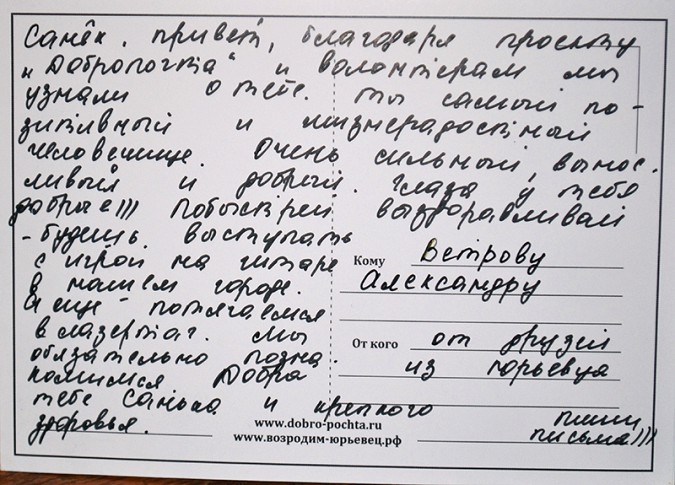 Санёк. привет, благодаря проекту
„Добропочта“ и волонтёрам мы
узнали о тебе. ты самый по-
зитивный и жизнерадостный
человечище. Очень сильный, вынос.
ливый и добрый. Глаза у тебя
добрые))) побыстрей выздоравливай
-будешь. выступать
с игрой на гитаре
в нашем городе.
А еще - потягаемся
в лазертаг. мы
обязательно позна.
комимся Добра
тебе Санька и крепкого
здоровья.
Кому Ветрову
Александру
От кого от друзей
из юрьевца
пиши
письма)))
www.dobro-pochta.ru
www.возродим-юрьевец.рф